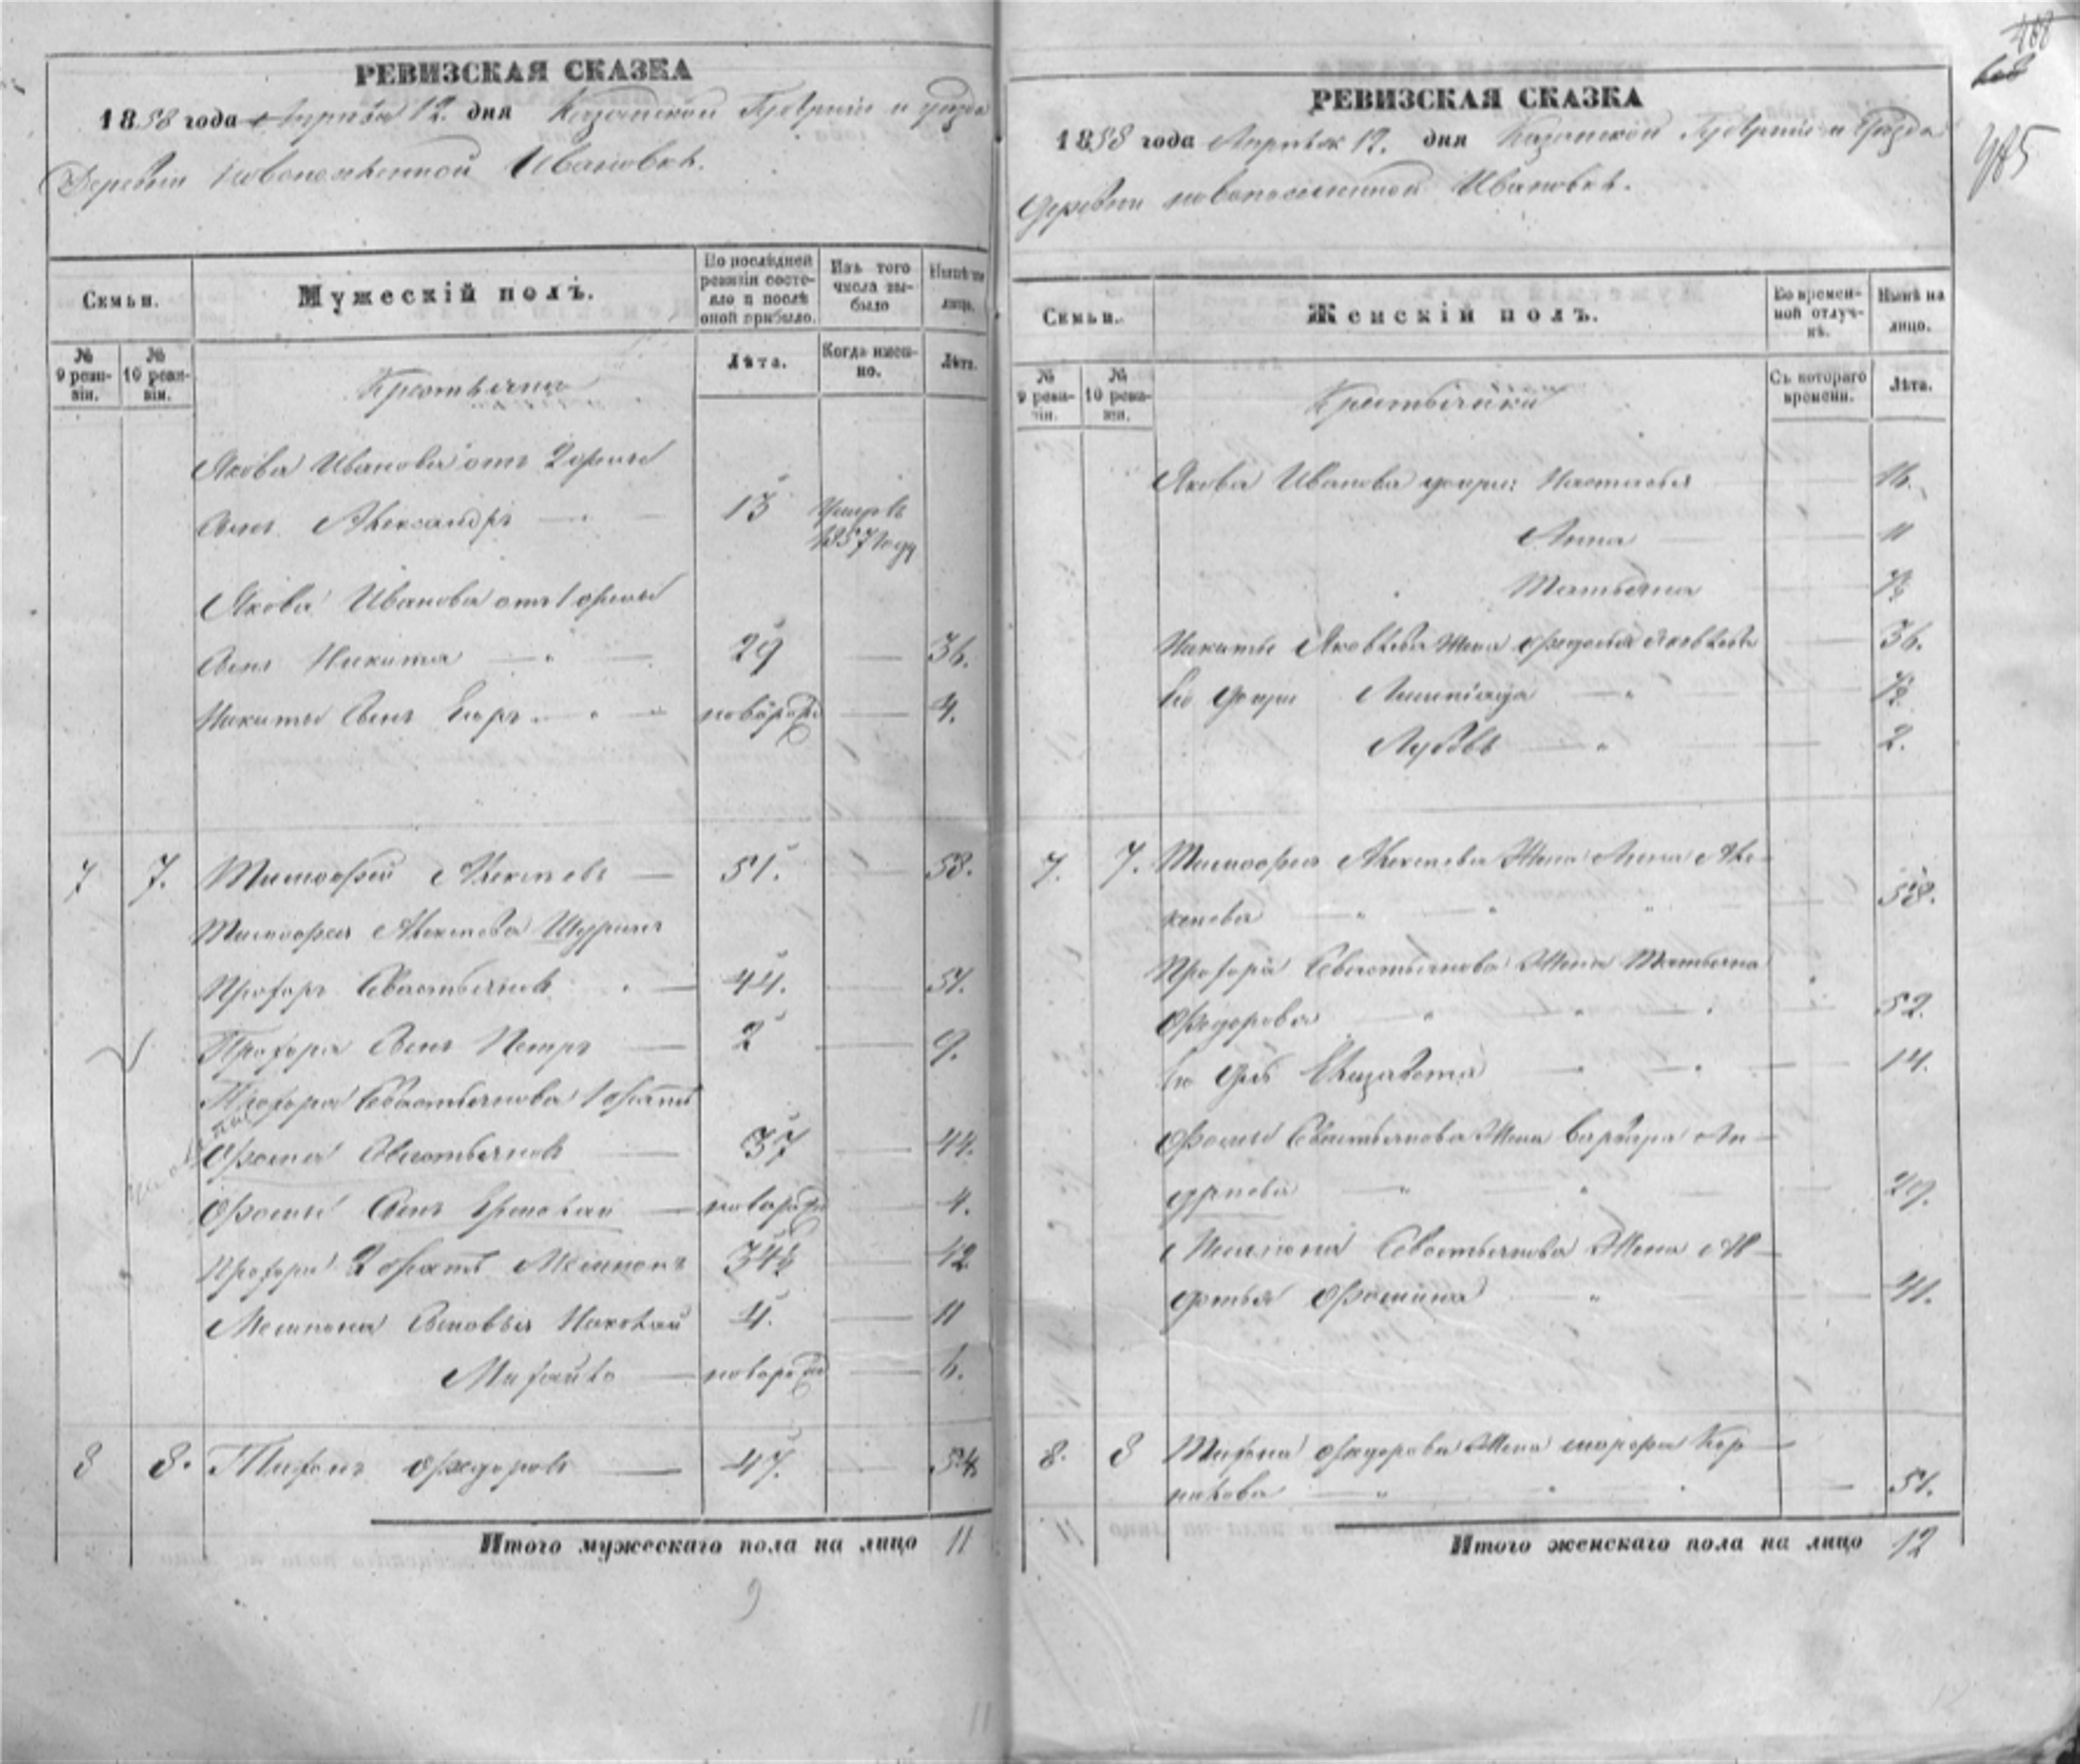 РЕВИЗСКАЯ СКАЗКА
1858 года Апреля 12. дня Казанской Губерніи и уезда
Деревни Новопоселенной Ивановки.
Семьи.
Мужескій полъ.
По послѣдней ревизіи состояло и послѣ оной прибыло.
Изъ того числа выбыло
Нынѣ на лицо.
№ 9 ревизіи.
№ 10 ревизіи.
Крестьяне
Лѣта.
Когда именно.
Лѣта.
Якова Иванова отъ 2 жены
сынъ Александръ 13 Умеръ 1857 году
Якова Иванова отъ 1 жены
сынъ Никита 29 36.
Никиты сынъ Егоръ новорожд 4.
7 7. Тимофей Алексеевъ 51. 58.
Тимофея Алексеева Шуринъ
Прохоръ Севастьяновъ 44. 51.
Прохора сынъ Петръ 2 9.
Прохора Севастьянова 1 братъ
Фома Севастьяновъ 37 44.
Фомы сынъ Ермолай новорожд 4.
Прохора 2 братъ Мемнонъ 34½ 42
Мемнона сыновья Николай 4. 11
Михайло новорожд 6.
8 8. Тихонъ Федоровъ 47. 54.
Итого мужескаго пола на лицо 11
9
468
485
РЕВИЗСКАЯ СКАЗКА
1858 года Апреля 12. дня Казанской Губерніи и Уезда
Деревни новопоселенной Ивановки.
Семьи.
Женскій полъ.
Во временной отлучкѣ.
Нынѣ на лицо.
№ 9 ревизіи.
№ 10 ревизіи.
Крестьянки
Съ котораго времени.
Лѣта.
Якова Иванова дочери: Настасья 16.
Анна 11
Татьяна ½
Никиты Яковлева Жена Федосья Яковлева 36.
Его дочери ½
Любовь 2.
7. 7. Тимофея Алексеева Жена Анна Але-
ксеева 58.
Прохора Севастьянова Жена Татьяна
Федорова 52.
Его дочь Елизавета 14.
Фомы Севастьянова Жена Варвара Ан-
дреева 29.
Мемнона Севастьянова Жена Ав-
дотья Фомина 41.
8. 8 Тихона Федорова Жена Кор-
нилова 51.
Итого женскаго пола на лицо 12